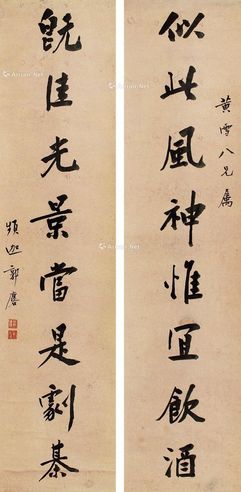 黄雪八兄属
似此風神惟宜飲酒
既佳光景當是劇棊
頻迦郭麐